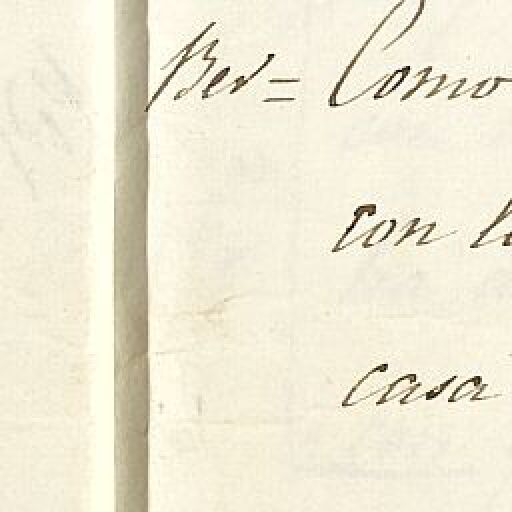 Bev= Como
con l
casa